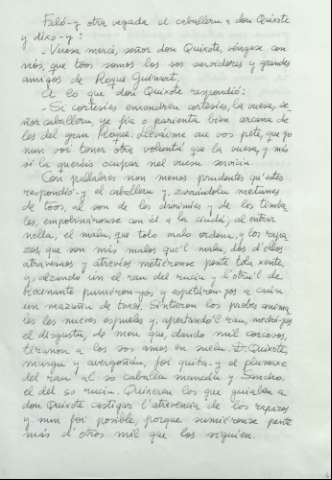 Faló-y otra vegada el caballeru a don Quixote
y díxo-y:
- Vuesa mercé, señor don Quixote, véngase con
nós, que toos somos los sos servidores y grandes
amigos de Roque Guinart.
A lo que don Quixote respondió:
- Si cortesíes enxendren cortesíes, la vuesa, se-
ñor caballeru, ye fía o parienta bien cercana de
les del gran Roque. Llevaime au vos pete, que yo
nun voi tener otra voluntá que la vuesa, y más
si la queréis ocupar nel vuesu serviciu.
Con pallabres non menos prudentes qu'estes
respondió-y el caballeru y, zarrándolu metanes
de toos, al son de les chirimíes y de los timba-
les, empobináronse con él a la ciudá; al entrar
nella, el malu, que tolo malo ordena, y los rapa-
zos, que son más malos que'l malu, dos d'ellos
atraviesaos y atrevíos metiéronse pente tola xente
y, alzando ún el rau del ruciu y l'otru'l de
Rocinante punxéron-yos y espetáron-yos a caún
un mazuñu de toxos. Sintieron los probes anima-
les les nueves espueles y, apertando'l rau, medró-yos
el disgustu, de mou que, dando mil corcovos,
tiraron a los sos amos en suelu. Don Quixote,
mengu y avergoñáu, foi quita-y el plumaxe
del rau al so caballu mancáu y Sancho,
el del so ruciu. Quixeron los que guiaben a
don Quixote castigar l'atrevencia de los rapazos
y nun foi posible, porque sumiéronse pente
más d'otros mil que los siguíen.